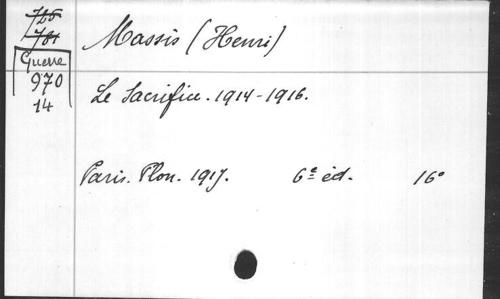 725
781
Guerre
970
14
Massis (Henri)
Le Sacrifice. 1914-1916.
Paris. Plon. 1917. 6e éd. 16°